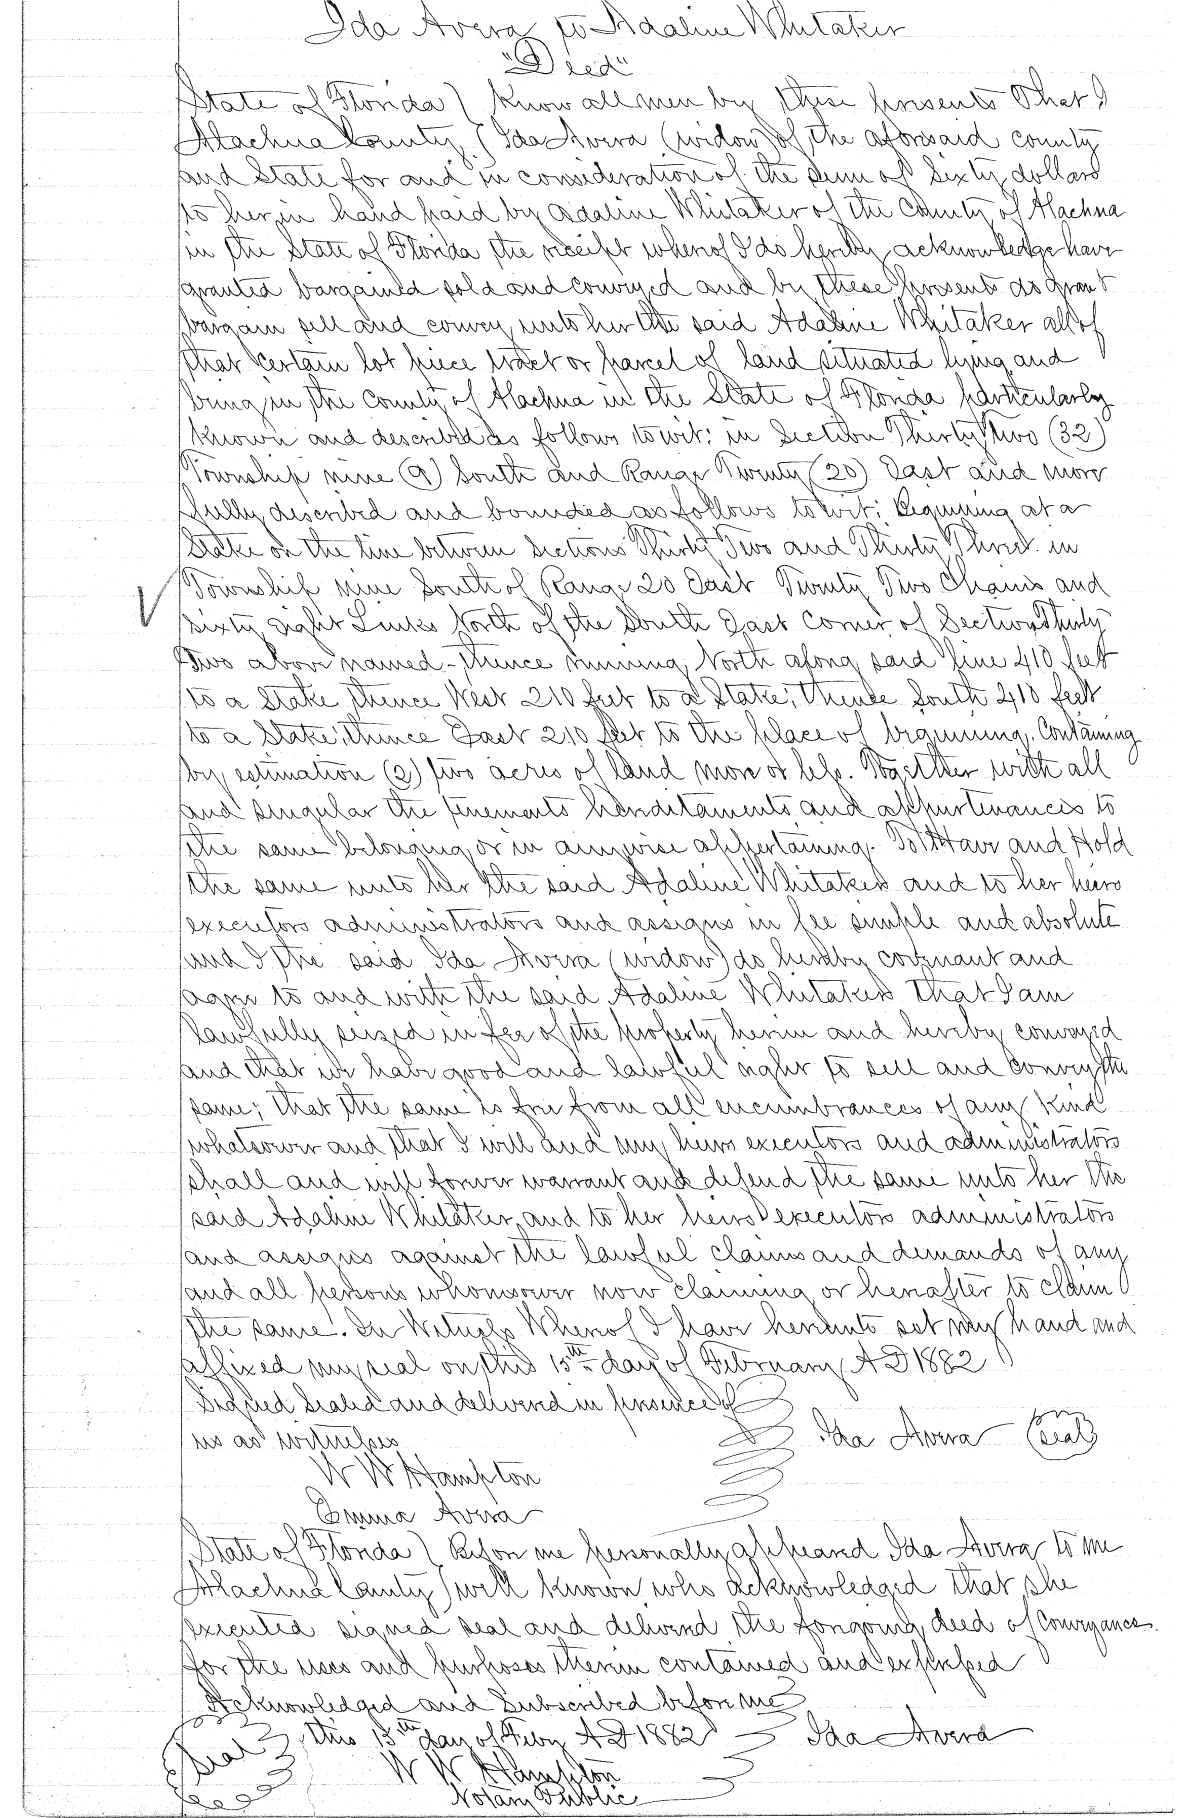 Ida Avera to Adaline Whitaker
"Deed"
State of Florida } Know all men by these presents That I
Alachua County } Ida Avera (widow) of the aforesaid county
and State for and in consideration of the sum of Sixty dollars
to her in hand paid by Adaline Whitaker of the County of Alachua
in the State of Florida the receipt whereof I do hereby acknowledge have
granted bargained sold and conveyed and by these presents do grant
bargain sell and convey unto her the said Adaline Whitaker all of
that certain lot piece tract or parcel of land situated lying and
being in the County of Alachua in the State of Florida particularly
known and described as follows to wit: in Section Thirty Two (32)
Township nine (9) South and Range Twenty (20) East and more
fully described and bounded as follows to wit: Beginning at a
Stake on the line between Sections Thirty Two and Thirty Three in
Township nine South of Range 20 East Twenty Two Chains and
sixty eight Links North of the South East Corner of Section Thirty
Two above named - thence running North along said line 410 feet
to a Stake, thence West 210 feet to a Stake; thence South 410 feet
to a Stake; thence East 210 feet to the place of beginning. Containing
by estimation (2) two acres of land more or less. Together with all
and singular the tenements hereditaments and appurtenances to
the same belonging or in anywise appertaining. To Have and Hold
the same unto her the said Adaline Whitaker and to her heirs
executors administrators and assigns in fee simple and absolute
and I the said Ida Avera (widow) do hereby covenant and
agree to and with the said Adaline Whitaker that I am
lawfully seized in fee of the property herein and hereby conveyed
and that we have good and lawful right to sell and convey the
same; that the same is free from all encumbrances of any kind
whatsoever and that I will and my heirs executors and administrators
shall and will forever warrant and defend the same unto her the
said Adaline Whitaker and to her heirs executors administrators
and assigns against the lawful claims and demands of any
and all persons whomsoever now claiming or hereafter to claim
the same. In Witness Whereof I have hereunto set my hand and
affixed my seal on this 15th day of February A D 1882
Signed Sealed and delivered in presence of
us as witnesses
Ida Avera (seal)
W W Hampton
Emma Avera
State of Florida } Before me personally appeared Ida Avera to me
Alachua County } well known who acknowledged that she
executed signed seal and delivered the foregoing deed of conveyance
for the uses and purposes therein contained and expressed
Acknowledged and Subscribed before me
this 15th day of Feby A D 1882 Ida Avera
Seal
W W Hampton
Notary Public